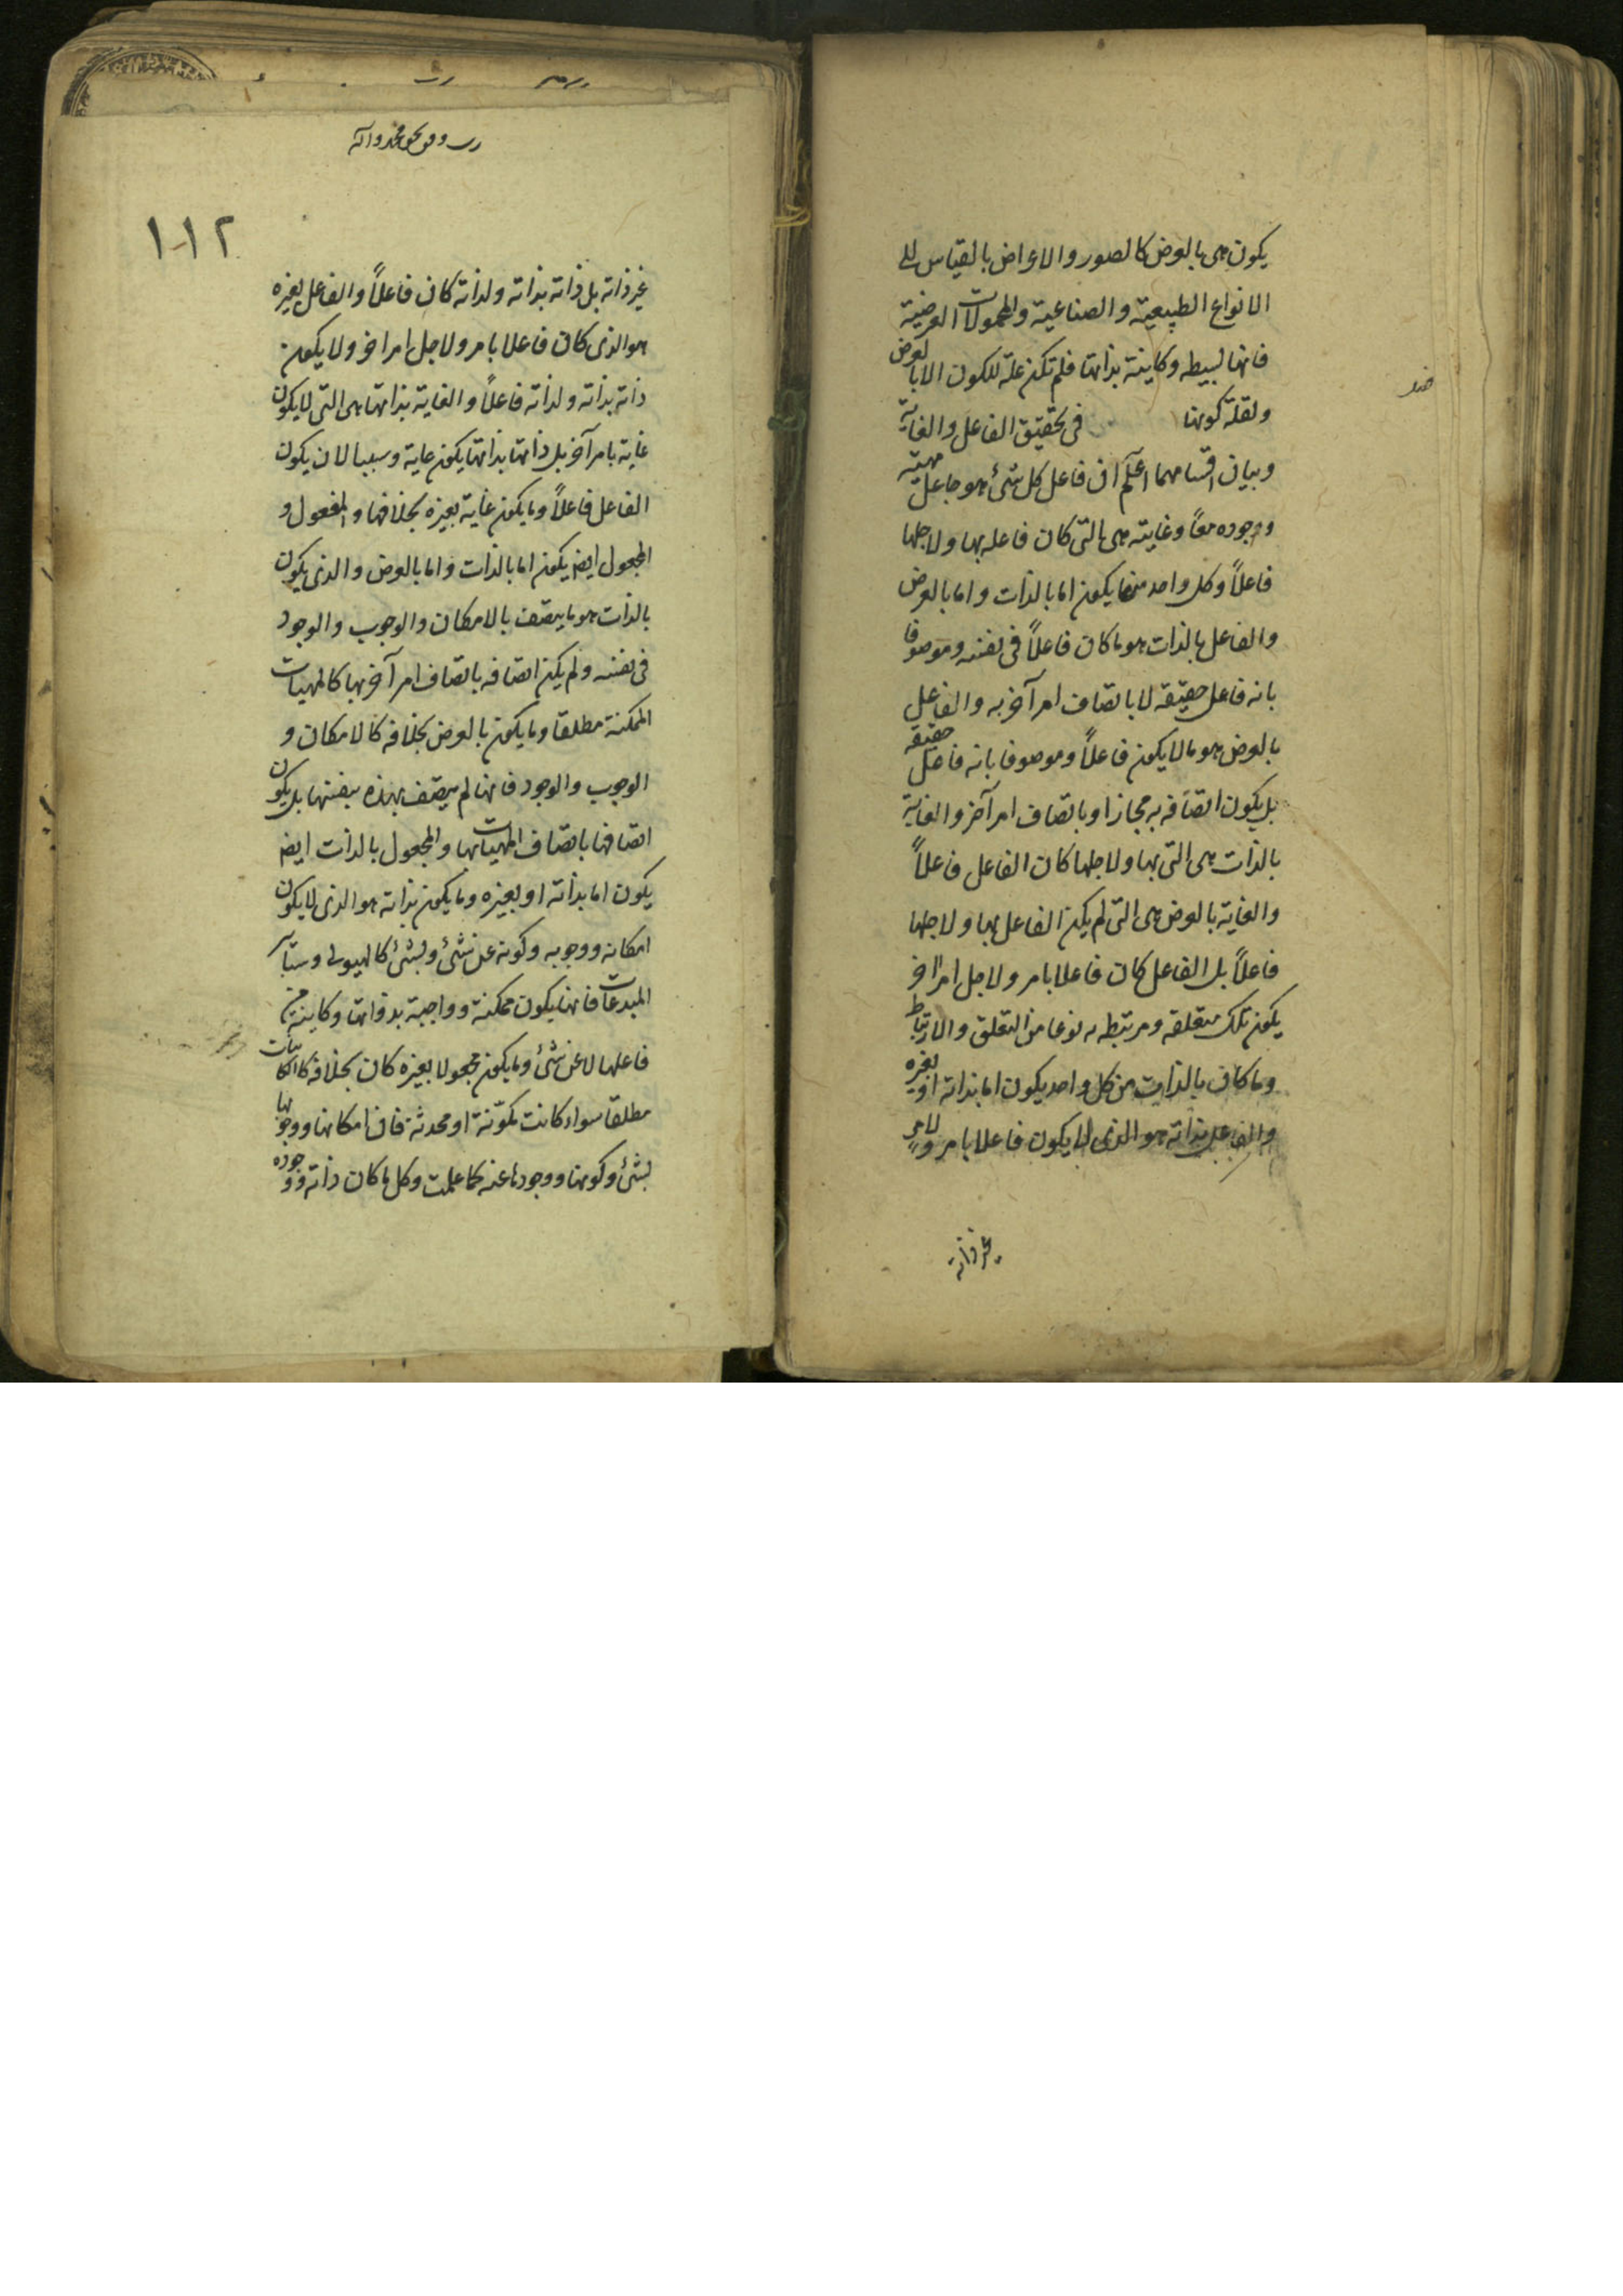 يكون هى بالعرض كالصور والاعراض بالقياس الى
الانواع الطبيعية والصناعية والمحمولات العرضية
فانها بسيطه وكاينة بذاتها فلم تكن علة للكون الا بالعرض
ولقلة كونها فى تحقيق الفاعل والغاية
وبيان اقسامهما اعلم ان فاعل كل شئ هو جاعل مهيته
ووجوده معاً وغايته هى التى كان فاعله بها ولاجلها
فاعلاً وكل واحد منهما يكون اما بالذات واما بالعرض
والفاعل بالذات هو ما كان فاعلاً فى نفسه وموصوفا
بانه فاعل حقيقه لا باتصاف امر آخر به والفاعل
بالعرض هو ما لا يكون فاعلاً وموصوفا بانه فاعل حقيقه
بل يكون اتصافه به مجازا وباتصاف امر آخر والغاية
بالذات هى التى بها ولاجلها كان الفاعل فاعلاً
والغاية بالعرض هى التى لم يكن الفاعل بها ولاجلها
فاعلاً بل الفاعل كان فاعلا بامر ولاجل امر اخر
يكون تلك متعلقه ومرتبطه به نوعا من التعلق والارتباط
وما كان بالذات من كل واحد يكون اما بذاته او بغيره
والفاعل بذاته هو الذى لا يكون فاعلا بامر ولامر
غير ذاته
محمد وآله
١١٢
غير ذاته بل ذاته بذاته ولذاته كان فاعلاً والفاعل بغيره
هو الذى كان فاعلا بامر ولاجل امر اخر ولا يكون
ذاته بذاته ولذاته فاعلاً والغاية بذاتها هى التى لا يكون
غاية بامر آخر بل ذاتها بذاتها يكون غاية وسببا لان يكون
الفاعل فاعلاً وما يكون غاية بغيره بخلافها والمفعول و
المجعول ايض يكون اما بالذات واما بالعرض والذى يكون
بالذات هو ما يتصف بالامكان والوجوب والوجود
فى نفسه ولم يكن اتصافه باتصاف امر آخر بها كالمهيات
الممكنة مطلقا وما يكون بالعرض بخلافه كالامكان و
الوجوب والوجود فانها لم يتصف بهذه بنفسها بل يكون
اتصافها باتصاف المهيات بها والمجعول بالذات ايض
يكون اما بذاته او بغيره وما يكون بذاته هو الذى لا يكون
امكانه ووجوبه وكونه عن شئ وبشئ كالهيولى وساير
المبدعات فانها يكون ممكنة وواجبة بذواتها وكاينة من
فاعلها لا عن شئ وما يكون مجعولا بغيره كان بخلافه كالكاينات
مطلقا سواء كانت مكوّنة او محدثة فان امكانها ووجوبها
بشئ وكونها ووجودها عنه كما علمت وكل ما كان ذاته ووجوده